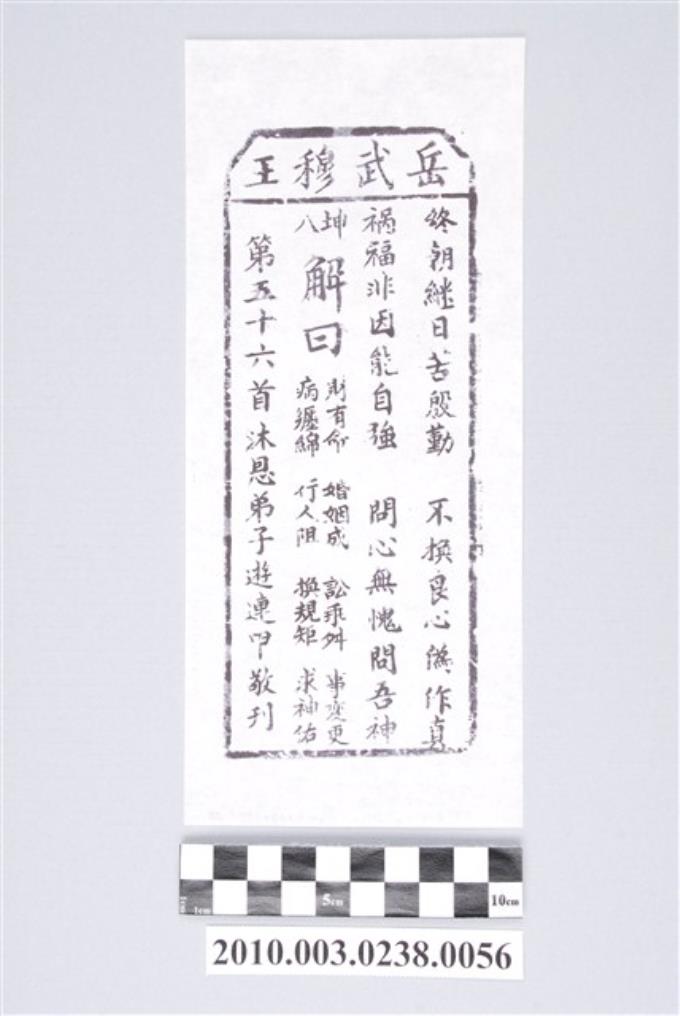 岳武穆王
終朝繼日苦殷勤 不換良心偽作真
禍福非因能自強 問心無愧問吾神
坤八 解曰 財有命 婚姻成 訟乖舛 事變更
病纏綿 行人阻 換規矩 求神佑
第五十六首沐恩弟子遊連甲敬刊
1cm 5cm 10cm
2010.003.0238.0056